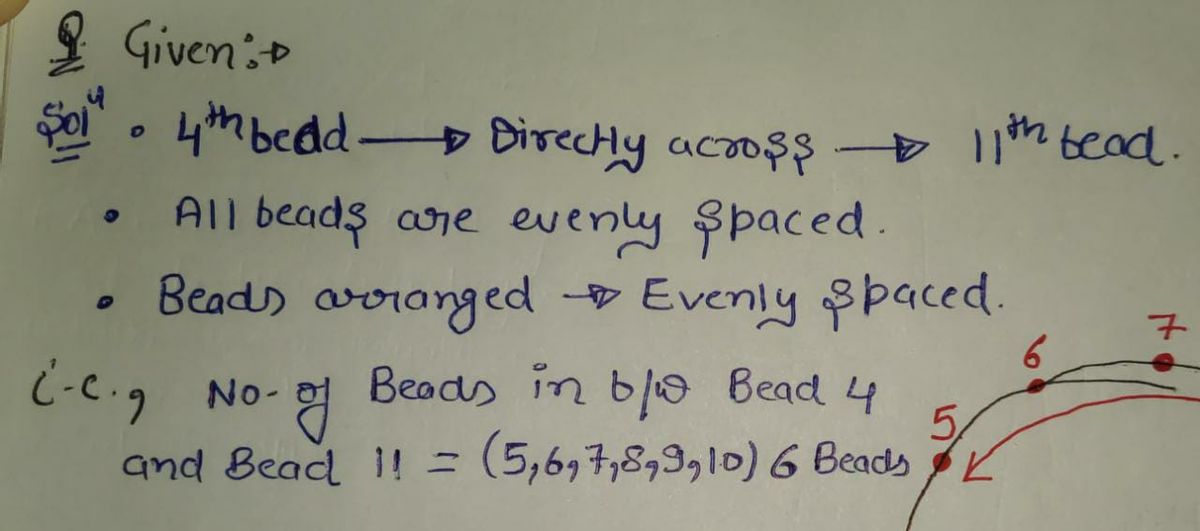 Q. Given:→
Solⁿ • 4th bead → Directly across → 11th bead.
• All beads are evenly spaced.
• Beads arranged → Evenly spaced.
i.e., No. of Beads in b/w Bead 4
and Bead 11 = (5,6,7,8,9,10) 6 Beads
5 6 7